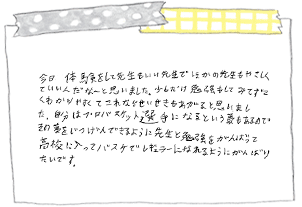 今日 体験をして先生もいい先生でほかの先生もやさしく
ていいんだなーと思いました。少しだけ勉強もしてみてすご
くわかりやすくてこれならせいせきもあがると思いまし
た。自分はプロバスケット選手になるという夢もあるので
夢をじつげんできるように先生と勉強をがんばって
高校に入ってバスケでレギュラーになれるようにがんばり
たいです。